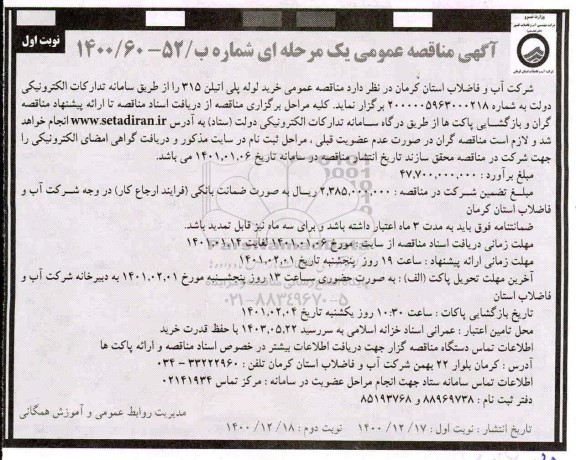 وزارت نیرو
نوبت اول
آگهی مناقصه عمومی یک مرحله ای شماره ب/۵۲-۱۴۰۰/۶۰
شرکت آب و فاضلاب استان کرمان در نظر دارد مناقصه عمومی خرید لوله پلی اتیلن ۳۱۵ را از طریق سامانه تدارکات الکترونیکی
دولت به شماره ۲۰۰۰۰۰۵۹۶۳۰۰۰۲۱۸ برگزار نماید. کلیه مراحل برگزاری مناقصه از دریافت اسناد مناقصه تا ارائه پیشنهاد مناقصه
گران و بازگشایی پاکت ها از طریق درگاه سامانه تدارکات الکترونیکی دولت (ستاد) به آدرس www.setadiran.ir انجام خواهد
شد و لازم است مناقصه گران در صورت عدم عضویت قبلی ، مراحل ثبت نام در سایت مذکور و دریافت گواهی امضای الکترونیکی را
جهت شرکت در مناقصه محقق سازند تاریخ انتشار مناقصه در سامانه تاریخ ۱۴۰۱.۰۱.۰۶ می باشد.
مبلغ برآورد : ۴۷,۷۰۰,۰۰۰,۰۰۰
مبلغ تضمین شرکت در مناقصه : ۲,۳۸۵,۰۰۰,۰۰۰ ریال به صورت ضمانت بانکی (فرایند ارجاع کار) در وجه شرکت آب و
فاضلاب استان کرمان
ضمانتنامه فوق باید به مدت ۳ ماه اعتبار داشته باشد و برای سه ماه نیز قابل تمدید باشد.
مهلت زمانی دریافت اسناد مناقصه از سایت : مورخ ۱۴۰۱.۰۱.۰۶ لغایت ۱۴۰۱.۰۱.۱۴
مهلت زمانی ارائه پیشنهاد : ساعت ۱۹ روز پنجشنبه تاریخ ۱۴۰۱.۰۲.۰۱
آخرین مهلت تحویل پاکت (الف) : به صورت حضوری ساعت ۱۳ روز پنجشنبه مورخ ۱۴۰۱.۰۲.۰۱ به دبیرخانه شرکت آب و
فاضلاب استان
تاریخ بازگشایی پاکات : ساعت ۱۰:۳۰ روز یکشنبه تاریخ ۱۴۰۱.۰۲.۰۴
محل تامین اعتبار : عمرانی اسناد خزانه اسلامی به سررسید ۱۴۰۳.۰۵.۲۲ با حفظ قدرت خرید
اطلاعات تماس دستگاه مناقصه گزار جهت دریافت اطلاعات بیشتر در خصوص اسناد مناقصه و ارائه پاکت ها
آدرس : کرمان بلوار ۲۲ بهمن شرکت آب و فاضلاب استان کرمان تلفن : ۳۳۲۲۲۹۶۰ - ۰۳۴
اطلاعات تماس سامانه ستاد جهت انجام مراحل عضویت در سامانه : مرکز تماس ۰۲۱۴۱۹۳۴
دفتر ثبت نام : ۸۸۹۶۹۷۳۸ و ۸۵۱۹۳۷۶۸
مدیریت روابط عمومی و آموزش همگانی
تاریخ انتشار : نوبت اول : ۱۴۰۰/۱۲/۱۷ نوبت دوم : ۱۴۰۰/۱۲/۱۸
۰۲۱-۸۸۳۴۹۶۷۰-۵